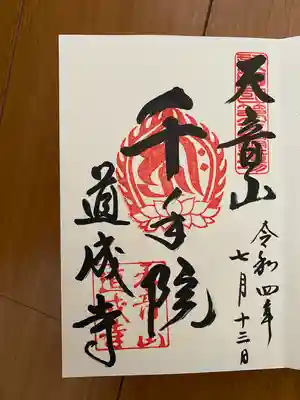 天音山
令和四年
七月十三日
千手院
道成寺